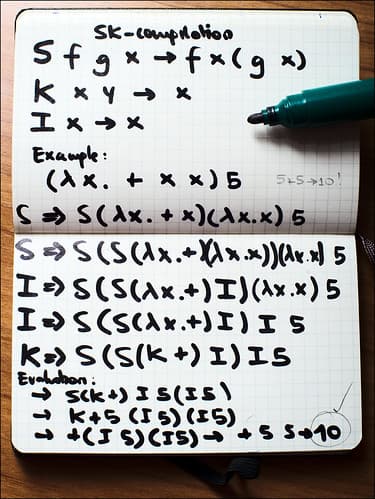 SK-compilation
S f g x → f x ( g x )
K x y → x
I x → x
Example:
(λx. + x x) 5
5+5→10!
S => S(λx.+ x)(λx.x) 5
S => S(S(λx.+)(λx.x))(λx.x) 5
I => S(S(λx.+) I)(λx.x) 5
I => S(S(λx.+) I) I 5
K => S(S(K +) I) I 5
Evaluation:
→ S(K+) I 5 (I 5)
→ K + 5 (I 5) (I 5)
→ +(I 5) (I 5) → + 5 5 → 10